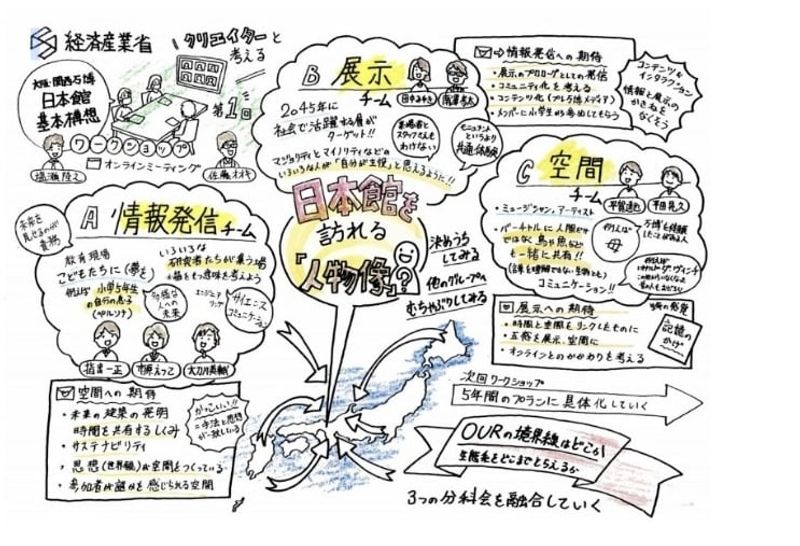 経済産業省
クリエイターと
考える
大阪・関西万博
日本館
基本構想
第1回
ワークショップ
オンラインミーティング
佐藤オオキ
A 情報発信チーム
未来を
見せるのが
責務
教育現場
こどもたちに(夢を)
例えば 小学5年生
の自分の息子
(ペルソナ)
いろいろな
研究者たちが集う場
多様な
人への
未来
エンジニア
リング
サイエンス
コミュニケーション
指出一正
市原えつこ
B 展示
チーム
田中みゆき
2045年に
社会で活躍する層が
ターゲット!!
マジョリティとマイノリティなどの
いろいろな人が「自分が主役」と思えるように!!
来場者と
スタッフさんも
わけない
モニュメント
というより
共通体験
情報発信への期待
・展示のプロローグとしての発信
・コミュニティ化を考える
・コンテンツ化(プレ万博メディア)
・メンバーに小学生から参加してもらう
コンテンツも
インタラクション
情報と展示の
かきねを
なくそう
C 空間
チーム
平田晃久
・ミュージシャン、アーティスト
・バーチャルに人間だけ
ではなく鳥や魚など
も一緒に共有!!
コミュニケーション!!
例えば
母
万博を経験
したことがある人
日本館を
訪れる
『人物像』?
決めうち
してみる
他のグループへ
むちゃぶりしてみる
展示への期待
・時間と空間をリンクしたものに
・五感を展示、空間に
・オンラインとのかかわりを考える
記憶の
かけら
空間への期待
・未来の建築の発明
時間を共有するしくみ
・サステナビリティ
・思想(世界観)が空間をつくっている
・参加者が謎かを感じられる空間
かっこいい!!
=手法と思想
が一致している
次回ワークショップ
5年間のプランに具体化していく
OURの境界線はどこか
生態系をどこまでとらえるか
3つの分科会を融合していく